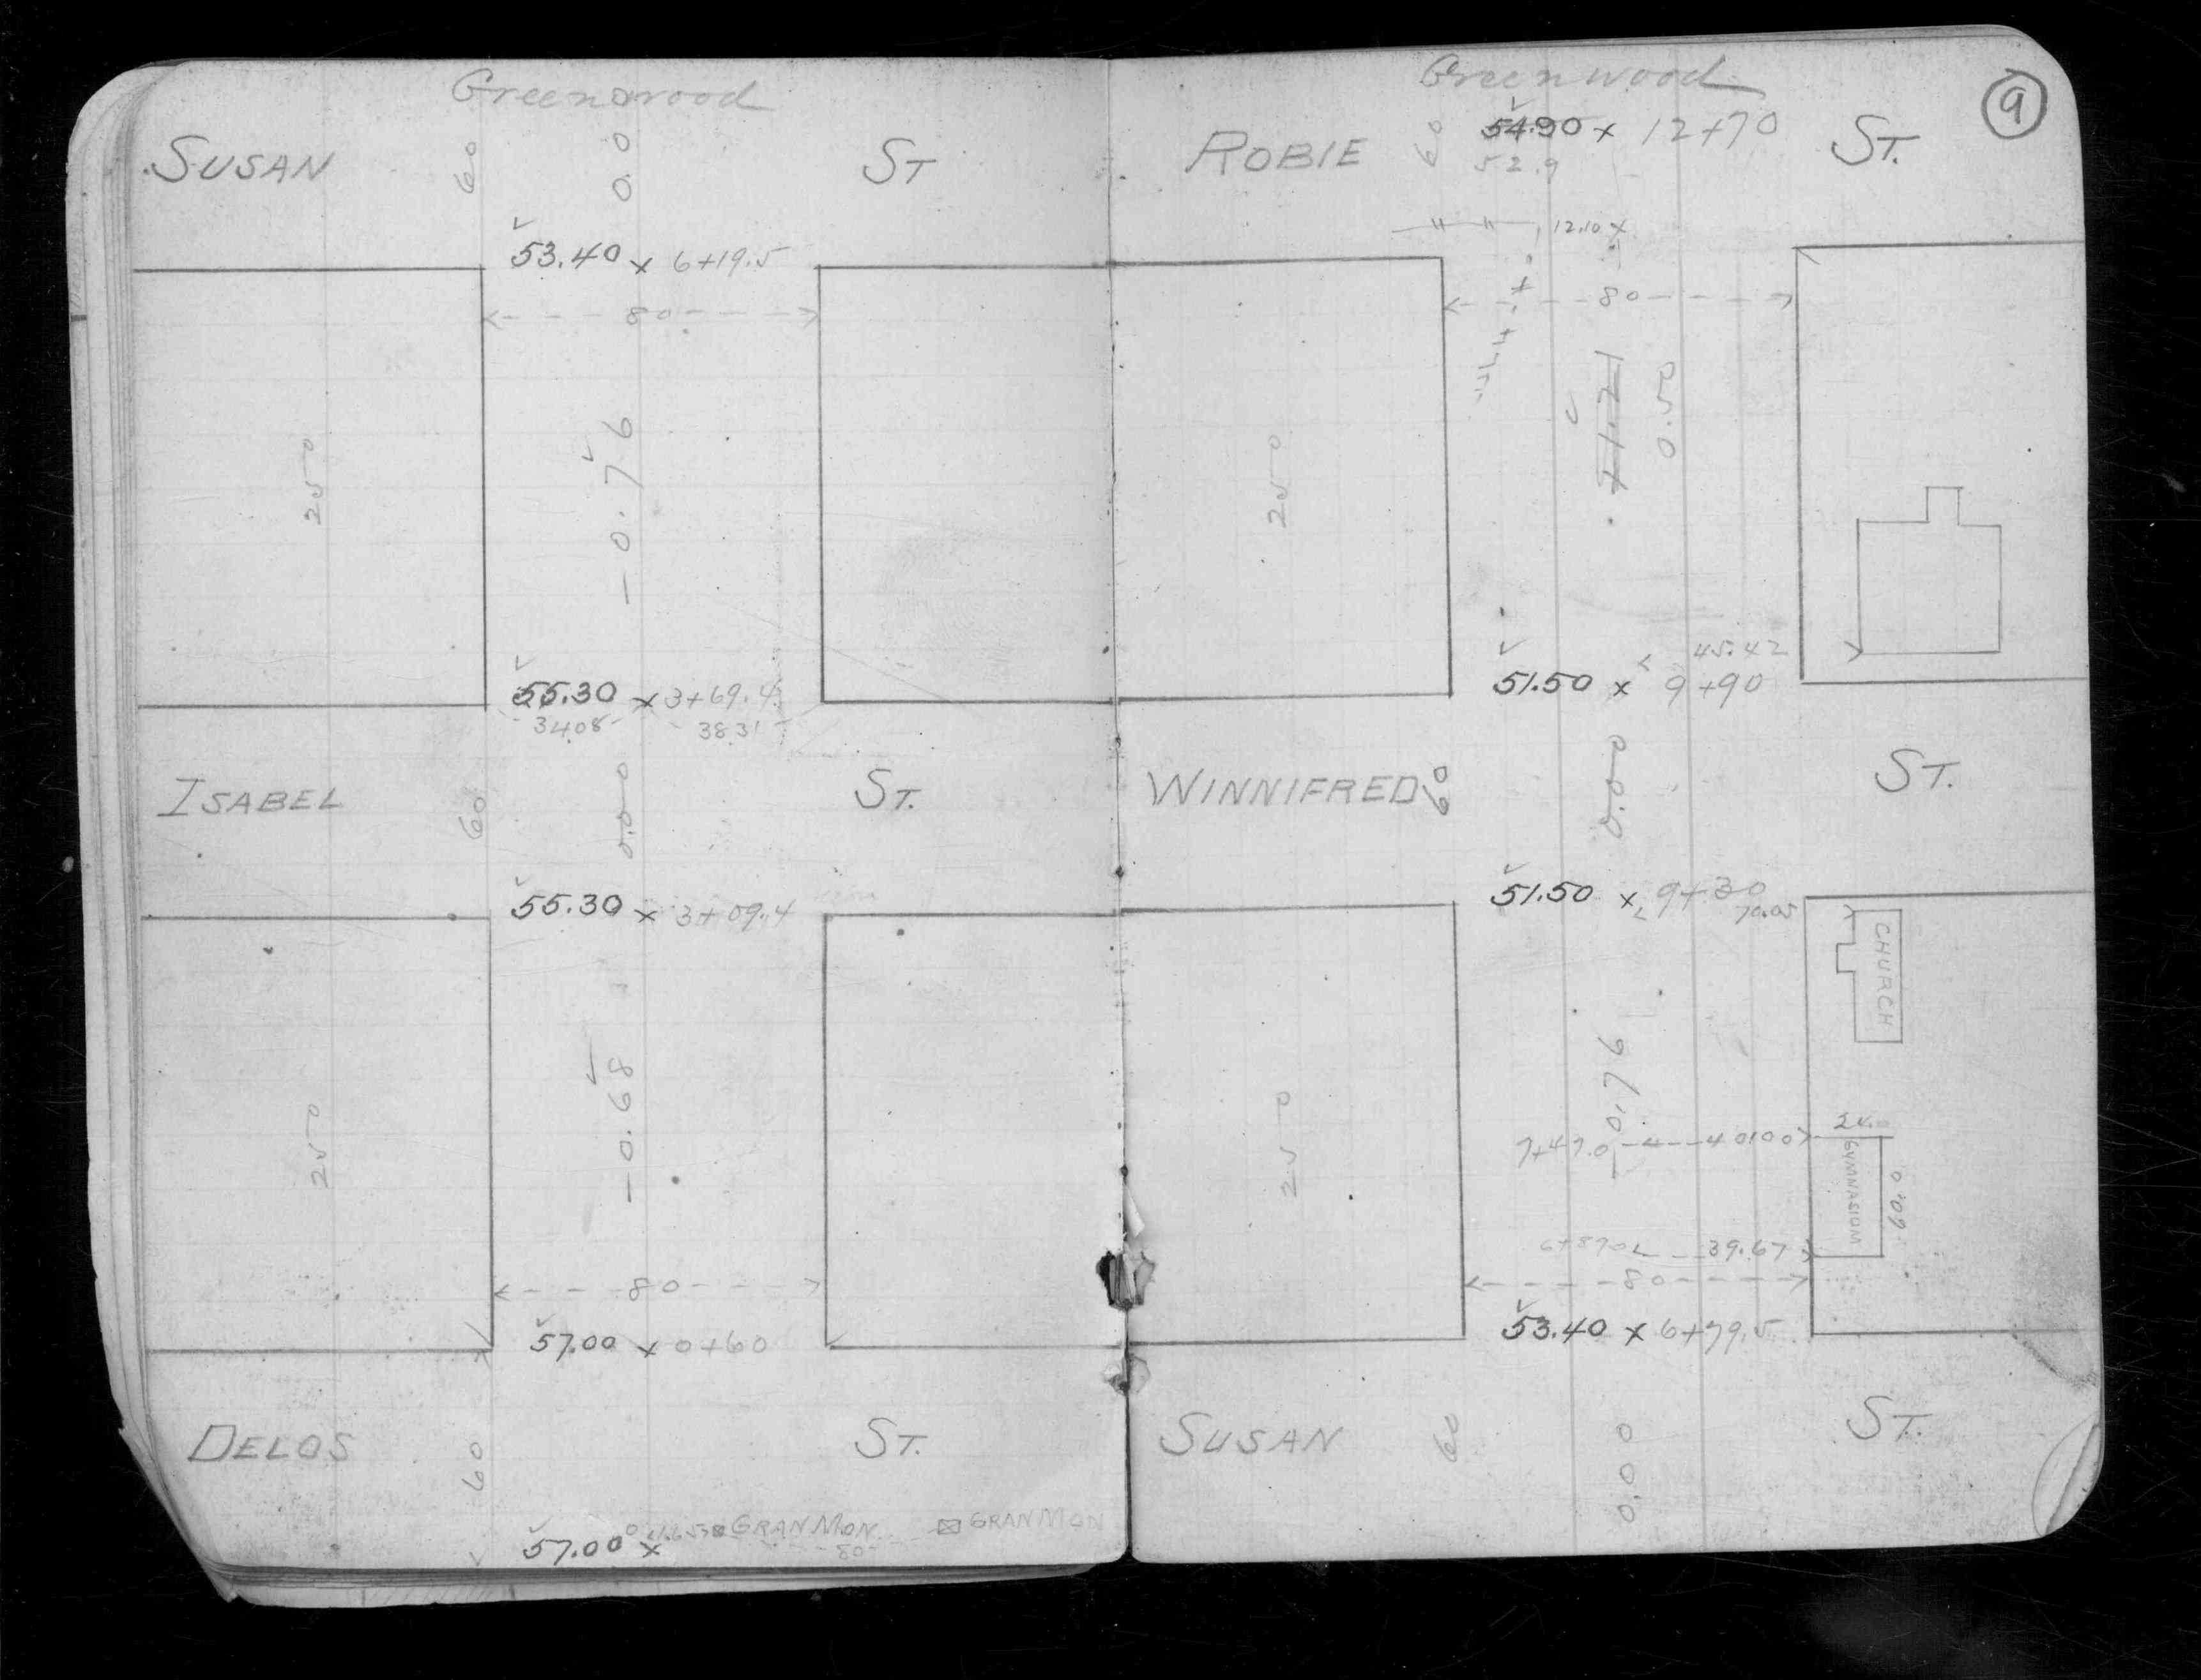 Greenwood
SUSAN 60 0.0 ST
53.40 x 6+19.5
80
250
-0.76
55.30 x 3+69.4
34.08 38.31
ISABEL 60 0.00 ST.
55.30 x 3+09.4
250
-0.68
80
57.00 x 0+60
DELOS 60 ST.
57.00 x GRAN MON GRAN MON
80
Greenwood
9
54.90 x 12+70
ROBIE 60 ST.
52.9
12.10 x
80
250
+1.21
0.50
45.42
51.50 x 9+90
WINNIFRED 60 0.00 ST.
51.50 x 9+30
70.05
CHURCH
250
-0.76
24.
7+47.0 40.00
GYMNASIUM
60.0
39.67
80
53.40 x 6+79.5
SUSAN 60 0.00 ST.